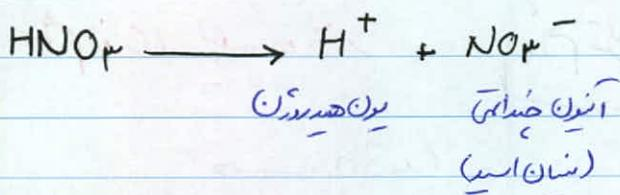 HNO۳ ⟶ H⁺ + NO۳⁻
یون هیدروژن
آنیون چنداتمی
(بنیان اسید)